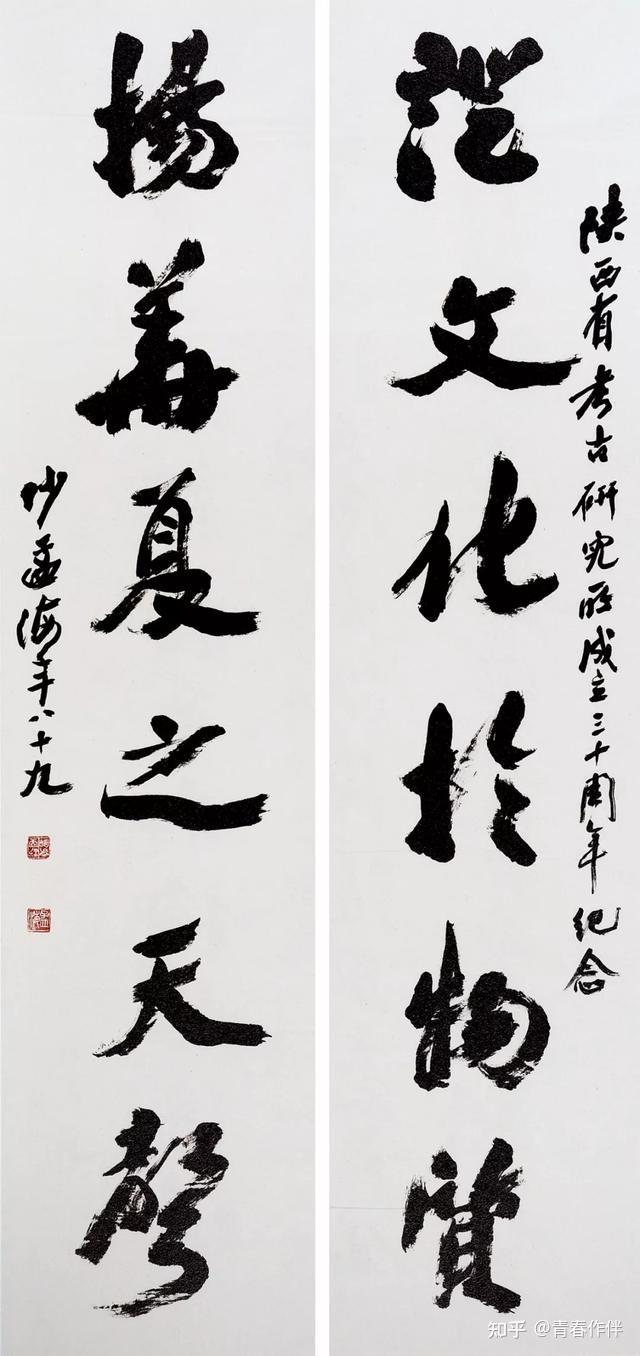 陝西省考古研究所成立三十周年紀念
證文化於物質
揚華夏之天聲
沙孟海年八十九
知乎 @青春作伴